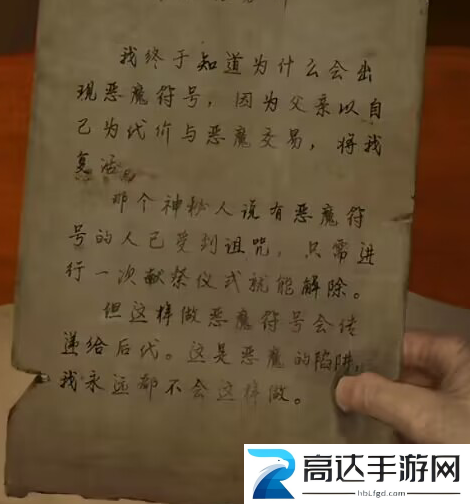 我终于知道为什么会出
现恶魔符号，因为父亲以自
己为代价与恶魔交易，将我
复活。
那个神秘人说有恶魔符
号的人已受到诅咒，只需进
行一次献祭仪式就能解除。
但这样做恶魔符号会传
递给后代。这是恶魔的陷阱，
我永远都不会这样做。
高达手游网
hbLfgd.com